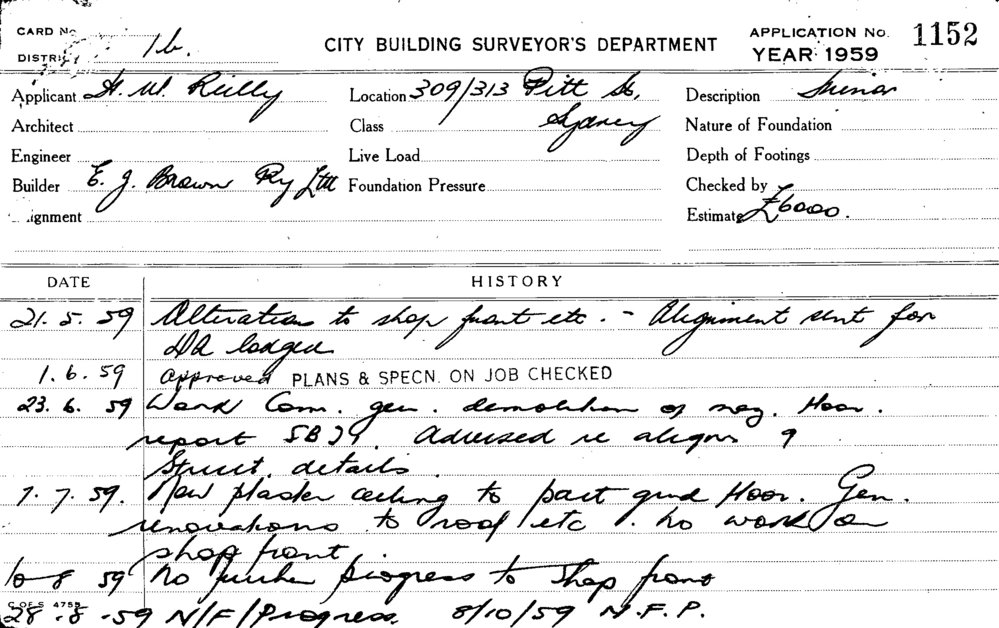 CARD No
DISTRICT 1b.
CITY BUILDING SURVEYOR'S DEPARTMENT
APPLICATION No. 1152
YEAR 1959
Applicant H. W. Reilly
Location 309/313 Pitt St,
Sydney
Description Minor
Architect
Class
Nature of Foundation
Engineer
Live Load
Depth of Footings
Builder E. J. Brown Pty Ltd
Foundation Pressure
Checked by
ignment
Estimate £6000.
DATE HISTORY
21. 5. 59 Alterations to shop front etc. - Alignment sent for
DA lodged
1. 6. 59 Approved PLANS & SPECN. ON JOB CHECKED
23. 6. 59 Work Com. gen. demolition of mez. floor.
report SB Advised re align &
Struct. details
7. 7. 59. New plaster ceiling to part grnd floor. Gen.
renovations to roof etc. No work on
shop front
10 8 59 No further progress to shop front
C OF S 4759
28 .8 .59 N/F/Progress. 8/10/59 N.F.P.